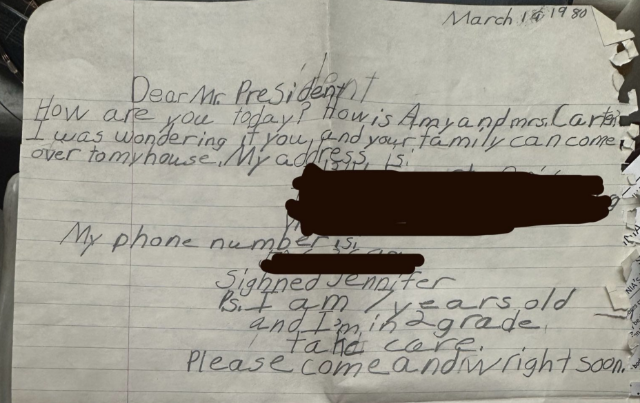 March 14 1980
Dear Mr. President
How are you today? How is Amy and mrs. Carter
I was wondering if you, and your family can come,
over to my house. My address is.
My phone number is,
Sighned Jennifer
Ps. I am 7 years old
and I'm in 2 grade.
take care.
Please come and wright soon.